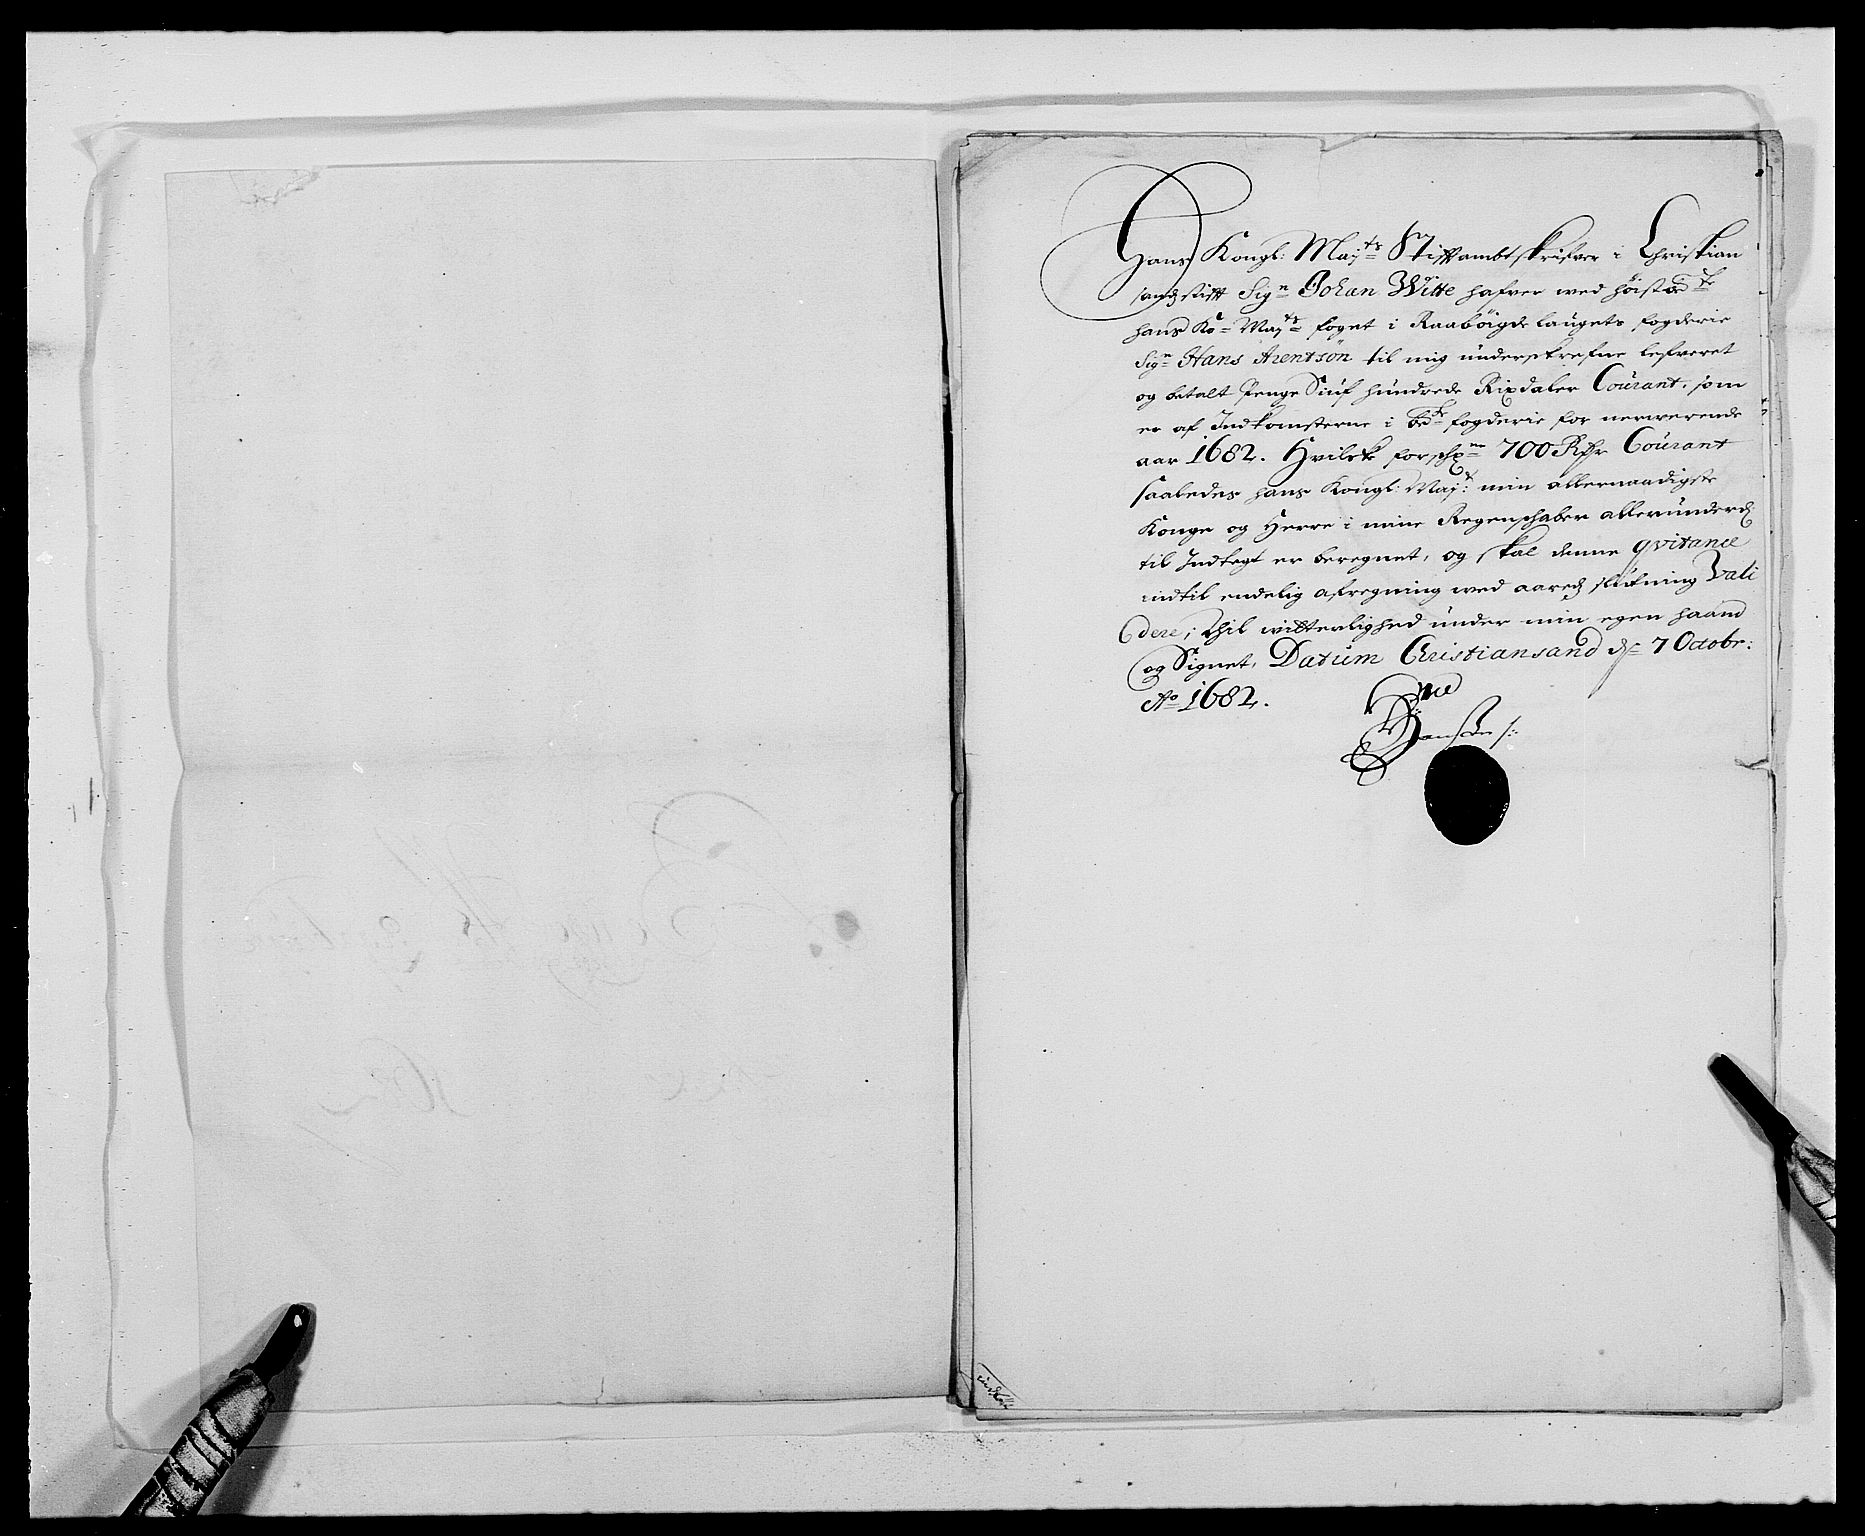 Hans Kongl: Maj:ts Stiftambtskrifver i Christian
sands stift Sign Johan Witte hafver wed høistbete
hans Ko: Majts foget i Raabøigdelaugets fogderie
Sign Hans Arentsøn til mig underskrefne lefveret
og betalt Penge Siuf hundrede Rixdaler Courant, som
er af Indkomsterne i bete fogderie for nerwerende
aar 1682. Hvilcke forschne 700 Rdr Courant
saaledes hans Kongl: Majt: min allernaadigste
Konge og Herre i mine Regenschaber allerunderd
til Indtegt er beregnet, og skal denne qvitance
indtil endelig afregning wed aareds slutning Vali
dere; Thil witterlighed under min egen haand
og Signet, Datum Christiansand d: 7 Octobr:
Ao 1682.